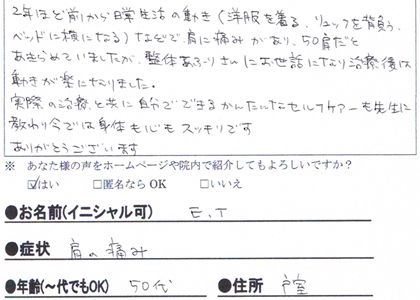 2年ほど前から日常生活の動き(洋服を着る、リュックを背負う、
ベッドに横になる)などで肩に痛みがあり、50肩だと
あきらめていましたが、整体あふりさんにお世話になり治療後は
動きが楽になりました。
実際の治療と共に自分でできるかんたんなセルフケアーも先生に
教わり今では身体も心もスッキリです
ありがとうございます
※ あなた様の声をホームページや院内で紹介してもよろしいですか?
☑はい □匿名なら OK □いいえ
●お名前(イニシャル可) E.T
●症状 肩の痛み
●年齢(~代でもOK) 50代 ●住所